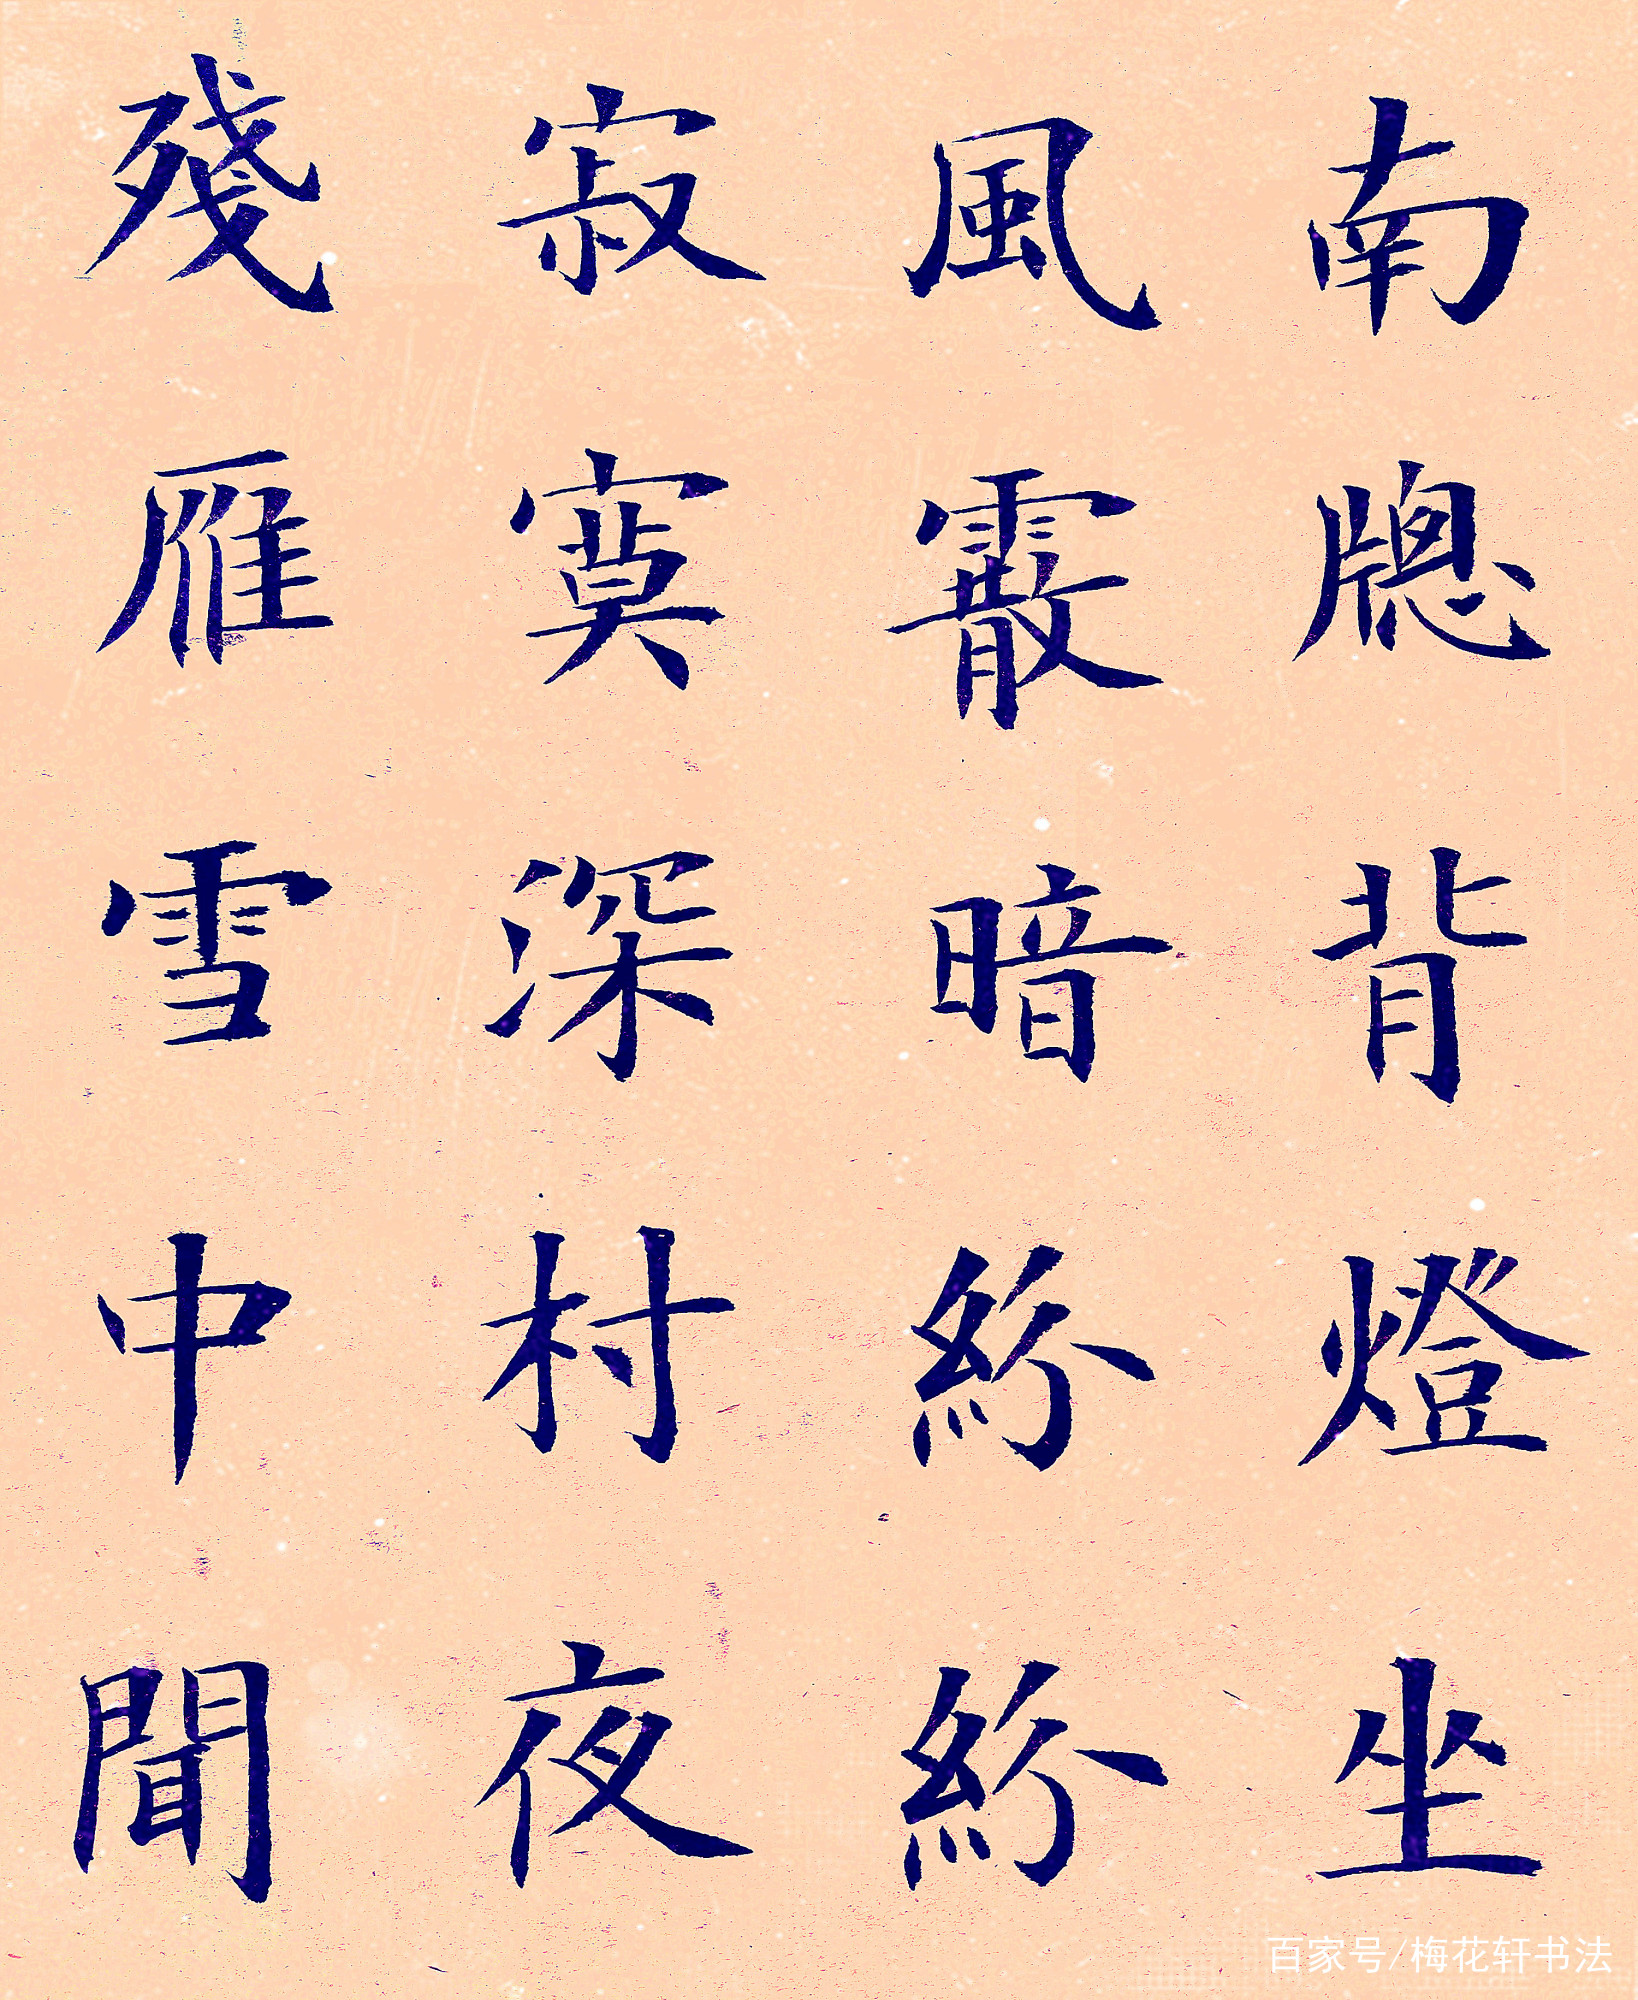 南牕背燈坐
風霰暗紛紛
寂寞深村夜
殘雁雪中聞
百家号/梅花轩书法